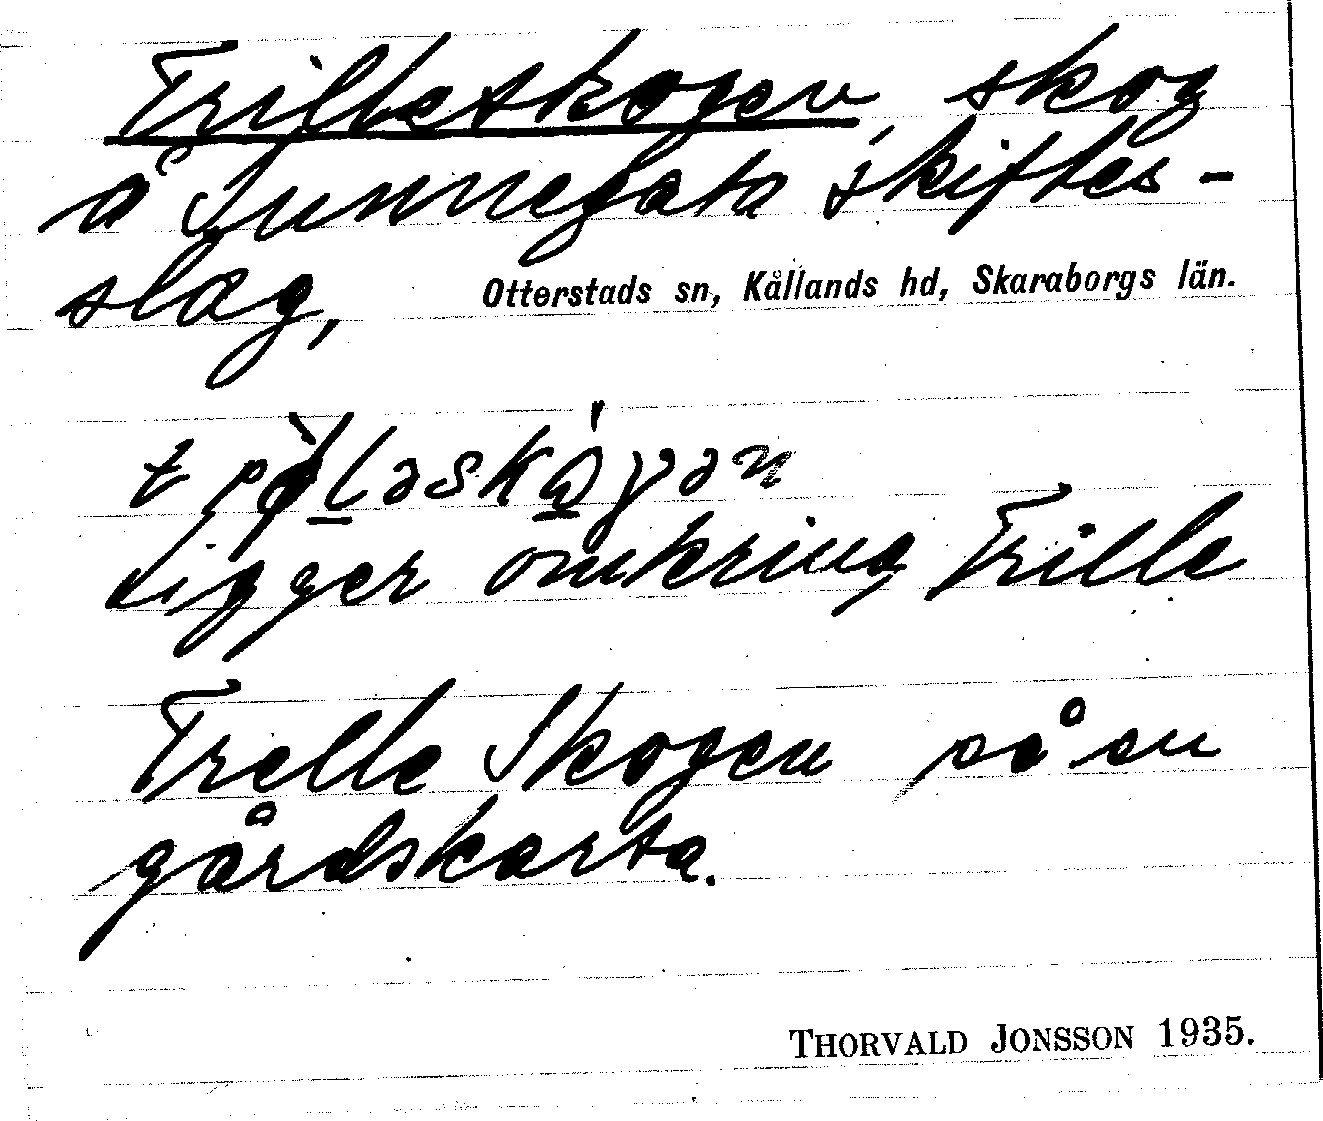 Trilleskogen, skog
å Sunnegata skiftes-
slag, Otterstads sn, Kållands hd, Skaraborgs län.
Ligger omkring Trille
Trelle Skogen på en
gårdskarta.
THORVALD JONSSON 1935.